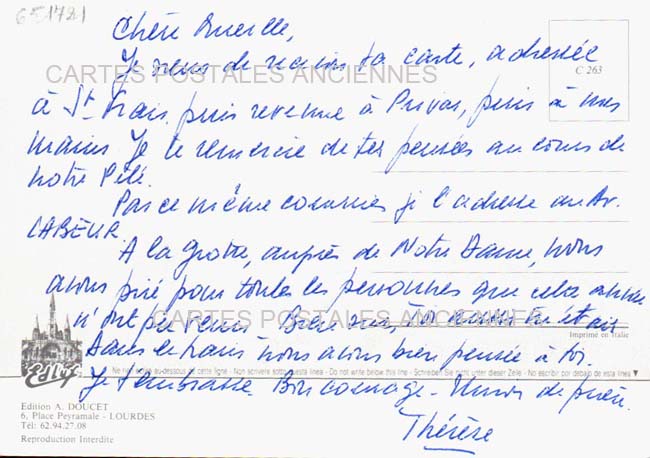 651721
Chère
Je viens de recevoir ta carte, adressée
CARTES POSTALES ANCIENNES
C 263
à St puis revenue à Privas, puis à mes
mains. Je te remercie de tes pensées au cours de
notre Pélé.
Par ce même courrier j l'adresse au Av.
LABEUR.
A la grotte, auprès de Notre Dame, nous
avons prié pour toutes les personnes que cette année
n'ont pu venir. Bien sûr,
CARTES POSTALES ANCIENNES
Imprimé en Italie
dans le train nous avons bien pensée à toi.
Ne rien écrire au-dessous de cette ligne - Non scrivere sotto questa linea - Do not write below this line - Schreiben Sie nicht unter dieser Zeile - No escribir por debajo de esta linea
Je t'embrasse. Bon courage - Union de prière.
Thérèse
Edition A. DOUCET
6, Place Peyramale - LOURDES
Tél: 62.94.27.08
Reproduction Interdite